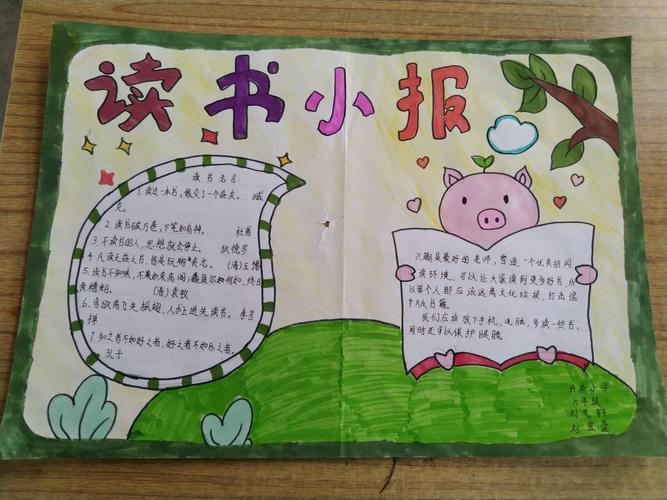 读书小报
读书名言:
1.读过一本书,像交了一个益友。 臧
克。
2.读书破万卷,下笔如有神。 杜甫
3.不读书的人,思想就会停止。 狄德罗
4.凡读无益之书,皆是玩物丧志。(清)王豫
5.读书不知味,不如束高阁;蠢鱼尔何如,终日
食糟粕。 (清)袁牧
6.鸟欲高飞先振翅,人求上进先读书。 李苦
禅
7.知之者不如好之者,好之者不如乐之者。
孔子
兴趣是最好的老师,营造一个优良的阅
读环境,可以让大家读到更多好书,所
以每个人都应该远离文化垃圾,打击盗
版书籍。
我们应该放下手机,电脑,多读一些书,
同时还可以保护眼睛
小学
六年级
刘
刘宜